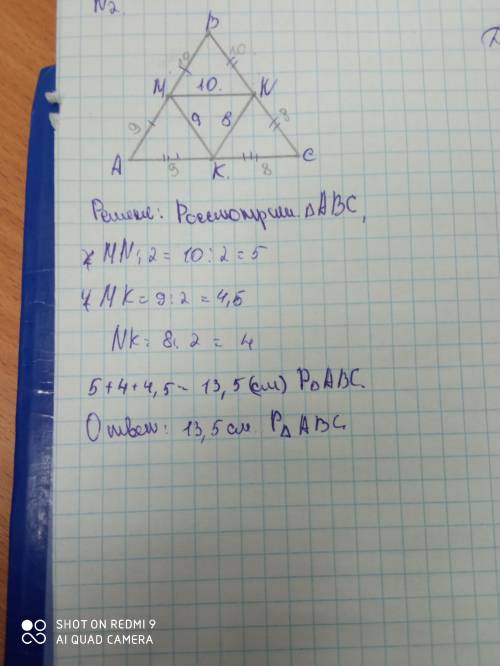 N2.
B
10 10
M 10. N
9 9 8 8
A 9 K. 8 C
Решение: Рассмотрим △ABC,
MN:2 = 10:2 = 5
MK = 9:2 = 4,5
NK = 8:2 = 4
5+4+4,5 = 13,5 (см) P△ABC
Ответ: 13,5 см. P△ABC
SHOT ON REDMI 9
AI QUAD CAMERA